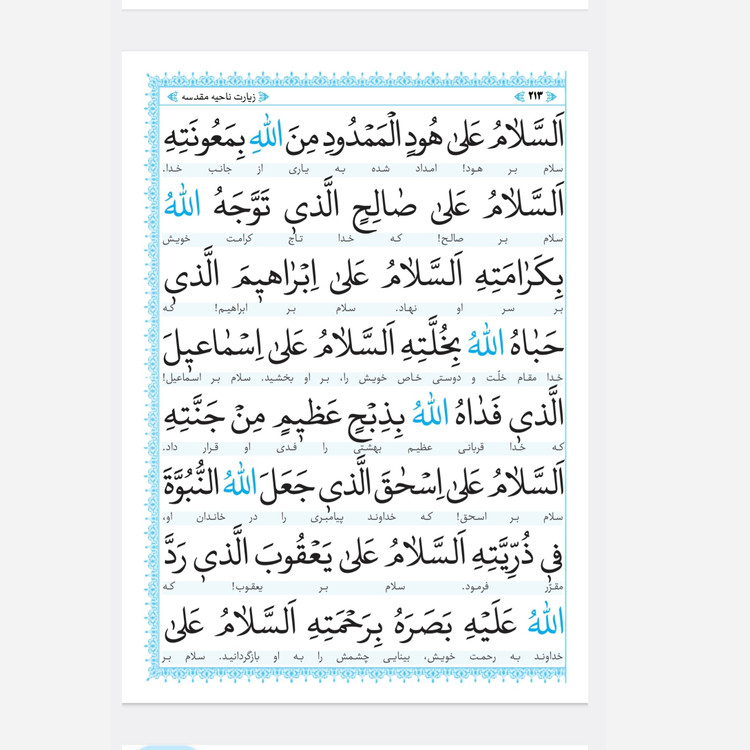 ۲۱۳ زیارت ناحیه مقدسه
اَلسَّلامُ عَلىٰ هُودٍ الْمَمْدُودِ مِنَ اللهِ بِمَعُونَتِهِ
سلام بر هود! امداد شده به یاری از جانب خدا.
اَلسَّلامُ عَلىٰ صٰالِحٍ الَّذي تَوَّجَهُ اللهُ
سلام بر صالح! که خدا تاج کرامت خویش
بِكَرٰامَتِهِ اَلسَّلامُ عَلىٰ اِبْرٰاهيمَ الَّذي
بر سر او نهاد. سلام بر ابراهیم! که
حَبٰاهُ اللهُ بِخُلَّتِهِ اَلسَّلامُ عَلىٰ اِسْمٰاعيلَ
خدا مقام خلّت و دوستی خاص خویش را، بر او بخشید. سلام بر اسماعیل!
الَّذي فَدٰاهُ اللهُ بِذِبْحٍ عَظيمٍ مِنْ جَنَّتِهِ
که خدا قربانی عظیم بهشتی را فدی او قرار داد.
اَلسَّلامُ عَلىٰ اِسْحٰقَ الَّذي جَعَلَ اللهُ النُّبُوَّةَ
سلام بر اسحق! که خداوند پیامبری را در خاندان او،
في ذُرِّيَّتِهِ اَلسَّلامُ عَلىٰ يَعْقُوبَ الَّذي رَدَّ
مقرّر فرمود. سلام بر یعقوب! که
اللهُ عَلَيْهِ بَصَرَهُ بِرَحْمَتِهِ اَلسَّلامُ عَلىٰ
خداوند به رحمت خویش، بینایی چشمش را به او بازگردانید. سلام بر